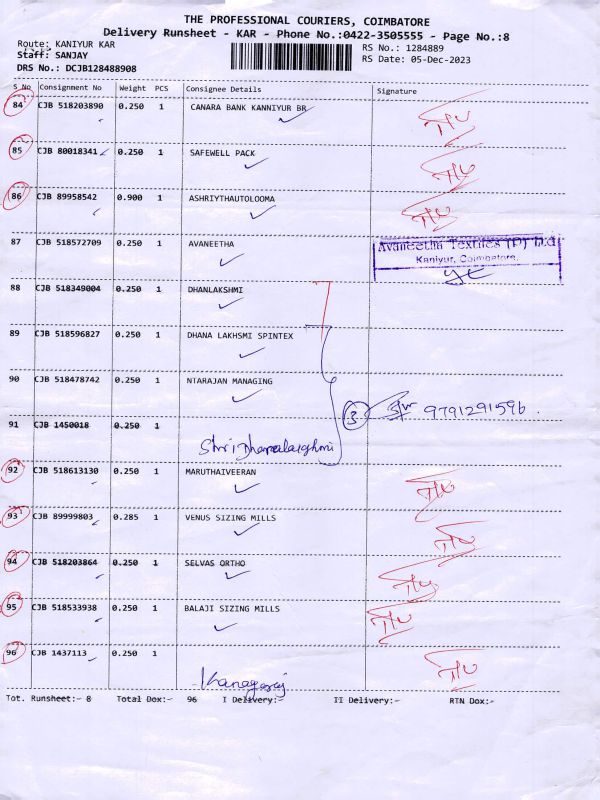 THE PROFESSIONAL COURIERS, COIMBATORE
Delivery Runsheet - KAR - Phone No.:0422-3505555 - Page No.:8
Route: KANIYUR KAR RS No.: 1284889
Staff: SANJAY RS Date: 05-Dec-2023
DRS No.: DCJB128488908
S No Consignment No Weight PCS Consignee Details Signature
84 CJB 518203890 0.250 1 CANARA BANK KANNIYUR BR
85 CJB 80018341 0.250 1 SAFEWELL PACK
86 CJB 89958542 0.900 1 ASHRIYTHAUTOLOOMA
87 CJB 518572709 0.250 1 AVANEETHA
Avaneetha Textiles (P) Ltd
Kaniyur, Coimbatore.
88 CJB 518349004 0.250 1 DHANLAKSHMI
89 CJB 518596827 0.250 1 DHANA LAKHSMI SPINTEX
90 CJB 518478742 0.250 1 NTARAJAN MANAGING
3 9791291596.
91 CJB 1450018 0.250 1
Shri Dhanalakshmi
92 CJB 518613130 0.250 1 MARUTHAIVEERAN
93 CJB 89999803 0.285 1 VENUS SIZING MILLS
94 CJB 518203864 0.250 1 SELVAS ORTHO
95 CJB 518533938 0.250 1 BALAJI SIZING MILLS
96 CJB 1437113 0.250 1
Kanagaraj
Tot. Runsheet:- 8 Total Dox:- 96 I Delivery:- II Delivery:- RTN Dox:-